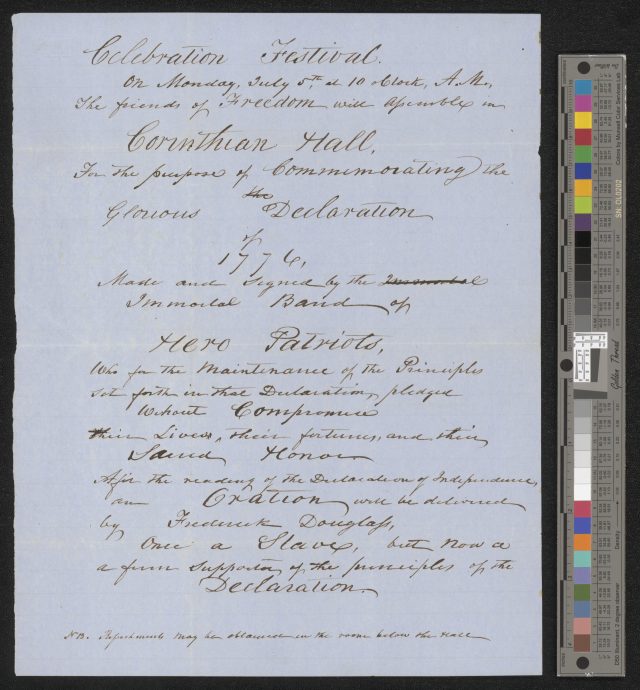 Celebration Festival.
On Monday, July 5th at 10 oClock, A.M.,
The friends of Freedom will assemble in
Corinthian Hall,
For the purpose of Commemorating the
the
Glorious Declaration
of
1776,
Made and Signed by the Immortal
Immortal Band of
Hero Patriots,
Who for the Maintenance of the Principles
set forth in that Declaration, pledged
Without Compromise
their Lives, their fortunes, and their
Sacred Honor
After the reading of the Declaration of Independence,
an Oration will be delivered
by Frederick Douglass,
Once a Slave, but now a
a firm supporter of the principles of the
Declaration.
N.B. Refreshments may be obtained in the room below the Hall
Colors by Munsell Color Services Lab
SN: OL0202
Golden Thread
Density